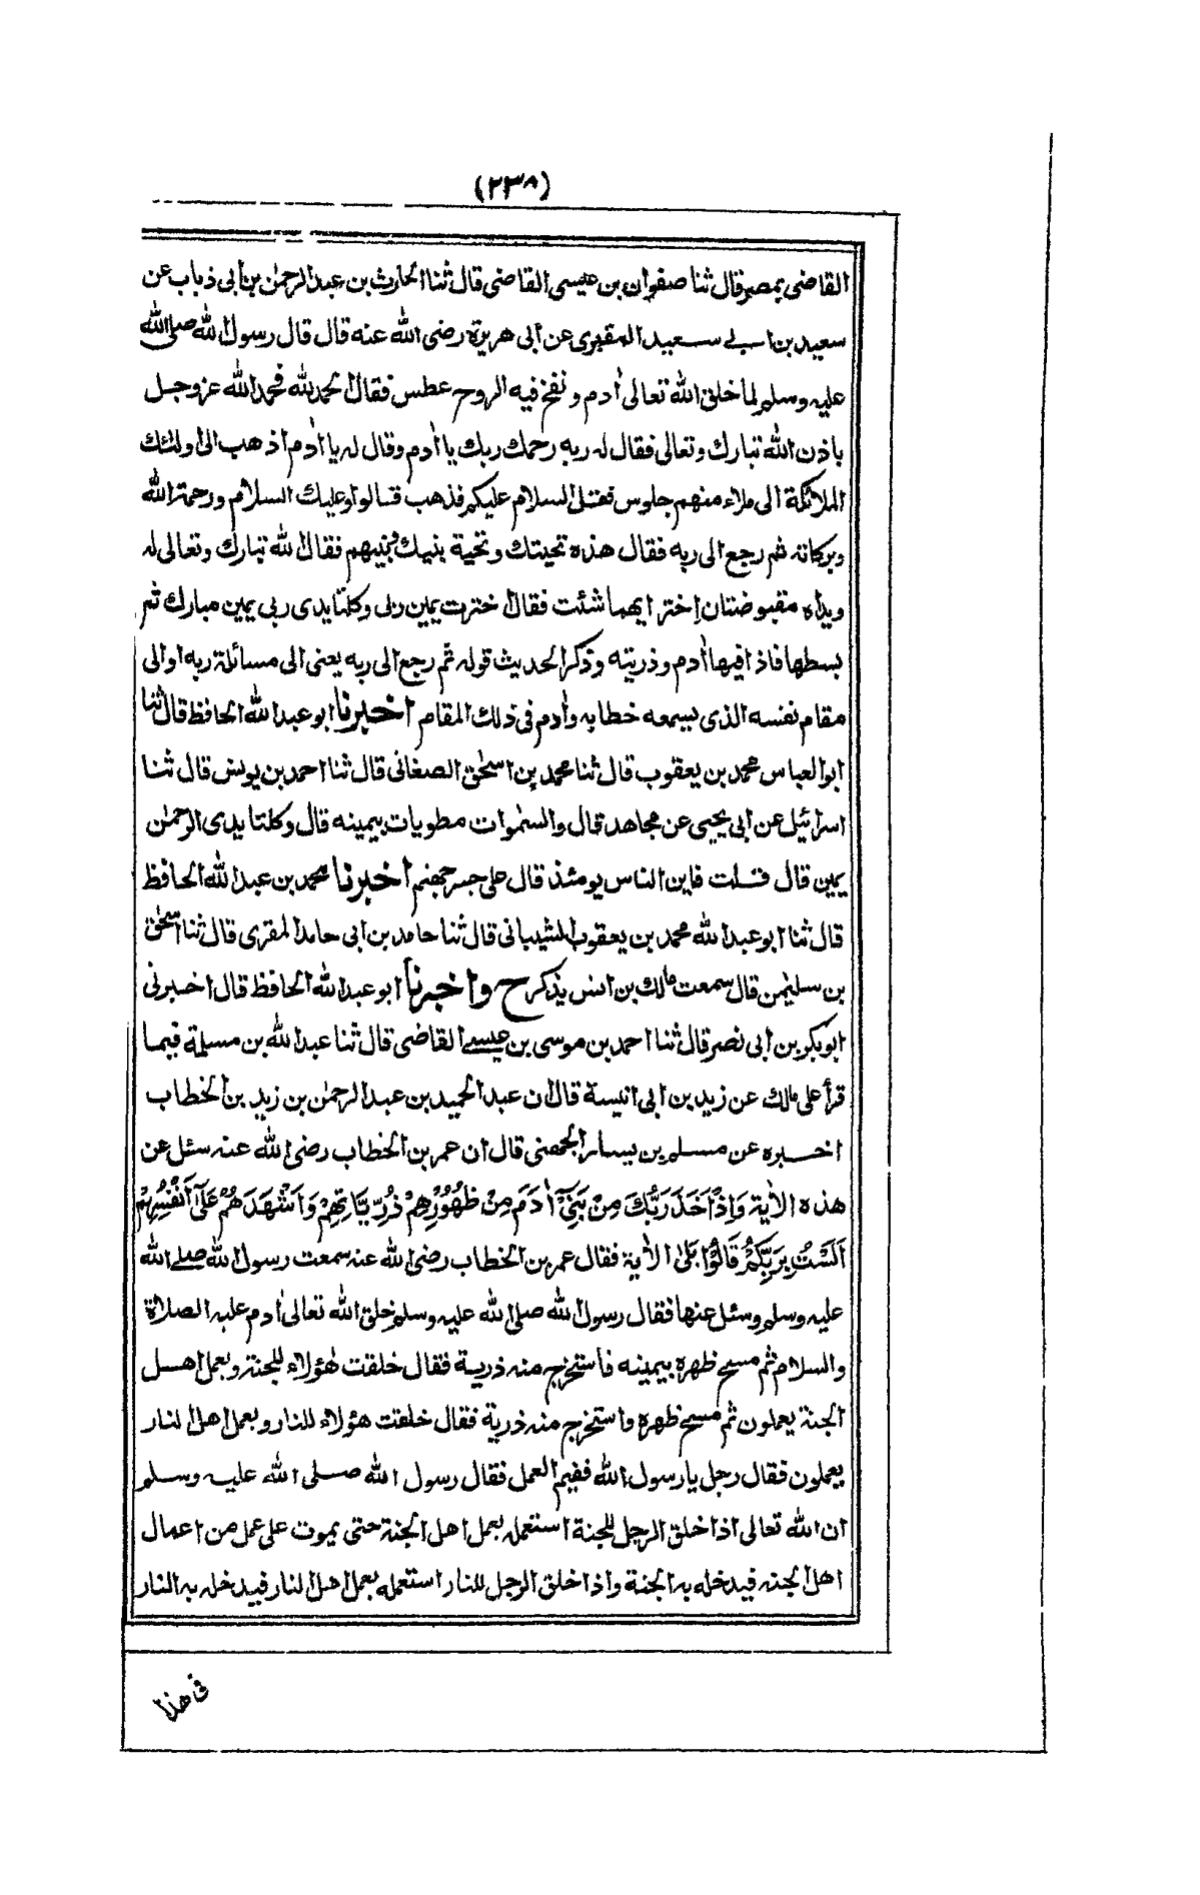 (٢٣٨)
القاضى بمصر قال ثنا صفوان بن عيسى القاضى قال ثنا الحارث بن عبد الرحمٰن بن ابى ذباب عن
سعيد بن ابى سعيد المقبرى عن ابى هريرة رضى الله عنه قال قال رسول الله صلى الله
عليه وسلم لما خلق الله تعالى اٰدم و نفخ فيه الروح عطس فقال الحمد لله فحمد الله عز وجل
باذن الله تبارك وتعالى فقال له ربه رحمك ربك يا اٰدم وقال له يا اٰدم اذهب الى اولئك
الملائكة الى ملاء منهم جلوس فقل السلام عليكم فذهب قالوا وعليك السلام ورحمة الله
وبركاته ثم رجع الى ربه فقال هذه تحيتك وتحية بنيك بينهم فقال الله تبارك وتعالى له
ويداه مقبوضتان اختر ايهما شئت فقال اخترت يمين ربى وكلتا يدى ربى يمين مبارك ثم
بسطها فاذا فيها اٰدم وذريته وذكر الحديث قوله ثم رجع الى ربه يعنى الى مسائلة ربه او الى
مقام نفسه الذى يسمعه خطابه واٰدم فى ذلك المقام اخبرنا ابو عبد الله الحافظ قال ثنا
ابو العباس محمد بن يعقوب قال ثنا محمد بن اسحٰق الصغانى قال ثنا احمد بن يونس قال ثنا
اسرائيل عن ابى يحيى عن مجاهد قال والسمٰوات مطويات بيمينه قال وكلتا يدى الرحمٰن
يمين قال قلت فاين الناس يومئذ قال على جسر جهنم اخبرنا محمد بن عبد الله الحافظ
قال ثنا ابو عبد الله محمد بن يعقوب الشيبانى قال ثنا حامد بن ابى حامد المقرى قال ثنا اسحٰق
بن سليمٰن قال سمعت مالك بن انس يذكر ح واخبرنا ابو عبد الله الحافظ قال اخبرنى
ابو بكر بن ابى نصر قال ثنا احمد بن موسى بن عيسى القاضى قال ثنا عبد الله بن مسلمة فيما
قرأ على مالك عن زيد بن ابى انيسة قال ان عبد الحميد بن عبد الرحمٰن بن زيد بن الخطاب
اخبره عن مسلم بن يسار الجهنى قال ان عمر بن الخطاب رضى الله عنه سئل عن
هذه الاٰية وَاِذْ اَخَذَ رَبُّكَ مِنْ بَنِىْٓ اٰدَمَ مِنْ ظُهُوْرِهِمْ ذُرِّيَّاتِهِمْ وَاَشْهَدَهُمْ عَلٰٓى اَنْفُسِهِمْ
اَلَسْتُ بِرَبِّكُمْ قَالُوْا بَلٰى الاٰية فقال عمر بن الخطاب رضى الله عنه سمعت رسول الله صلى الله
عليه وسلم وسئل عنها فقال رسول الله صلى الله عليه وسلم خلق الله تعالى اٰدم عليه الصلاة
والسلام ثم مسح ظهره بيمينه فاستخرج منه ذرية فقال خلقت هٰؤلاء للجنة وبعمل اهل
الجنة يعملون ثم مسح ظهره واستخرج منه ذرية فقال خلقت هؤلاء للنار وبعمل اهل النار
يعملون فقال رجل يا رسول الله ففيم العمل فقال رسول الله صلى الله عليه وسلم
ان الله تعالى اذا خلق الرجل للجنة استعمله بعمل اهل الجنة حتى يموت على عمل من اعمال
اهل الجنه فيدخله به الجنة واذا خلق الرجل للنار استعمله بعمل اهل النار فيدخله به النار
فى هذا